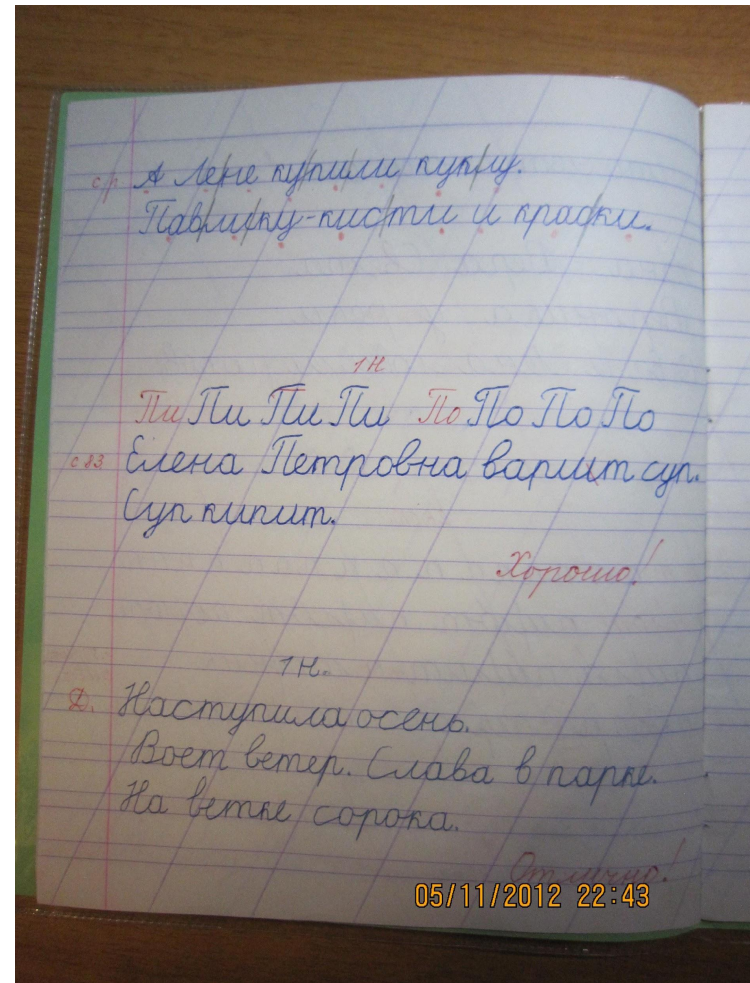 с р. А Лене купили куклу.
Павлику-кисти и краски.
1 Н
Пи Пи Пи Пи По По По По
с 83 Елена Петровна варит суп.
Суп кипит.
Хорошо!
1 Н.
Д. Наступила осень.
Воет ветер. Слава в парке.
На ветке сорока.
Отлично!
05/11/2012 22:43